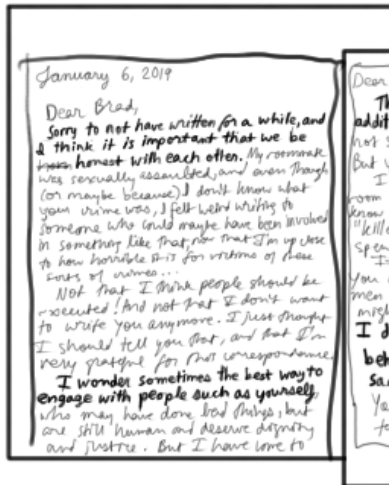 January 6, 2019
Dear Brad,
Sorry to not have written for a while, and
I think it is important that we be
honest with each other. My roommate
was sexually assaulted, and even though
(or maybe because) I don't know what
your crime was, I felt weird writing to
someone who could maybe have been involved
in something like that, now that I'm up close
to how horrible it is for victims of these
sorts of crimes...
Not that I think people should be
executed! And not that I don't want
to write you anymore. I just thought
I should tell you that, and that I'm
very grateful for this correspondence.
I wonder sometimes the best way to
engage with people such as yourself,
who may have done bad things, but
are still human and deserve dignity
and justice. But I have come to
Dear
addit
not s
But w
I
room
know
"kille
spen
you
men
migh
I d
beh
sa